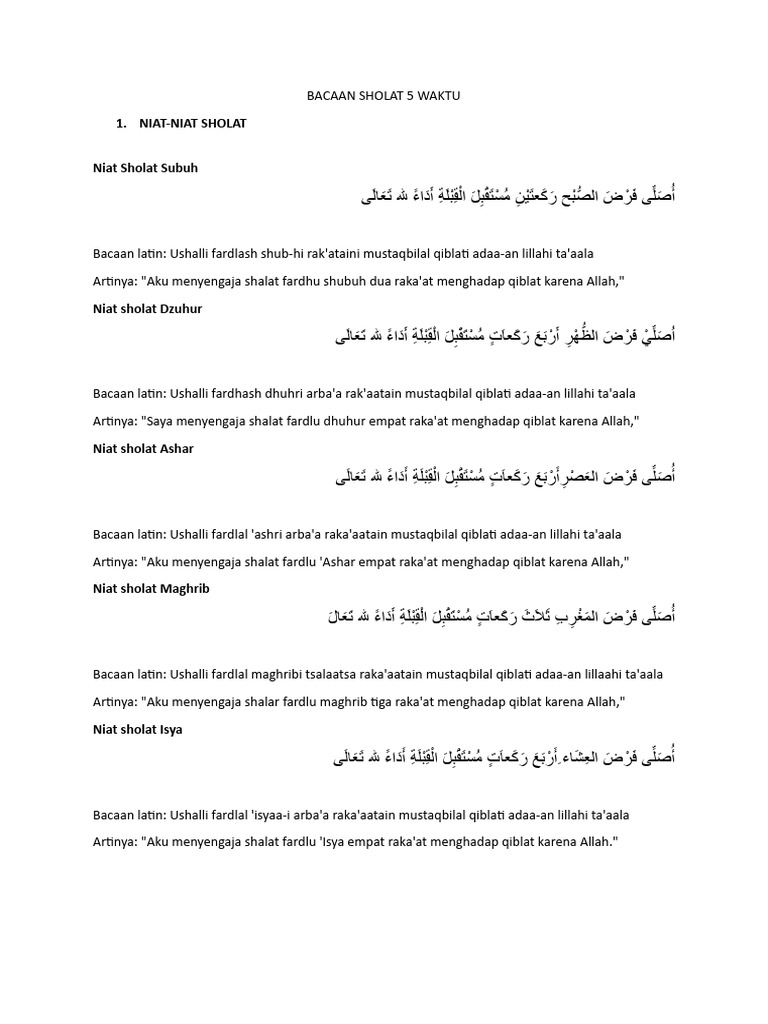 BACAAN SHOLAT 5 WAKTU
1. NIAT-NIAT SHOLAT
Niat Sholat Subuh
أُصَلِّى فَرْضَ الصُّبْح رَكَعتَيْنِ مُسْتَقْبِلَ الْقِبْلَةِ أَدَاءً لله تَعَالَى
Bacaan latin: Ushalli fardlash shub-hi rak'ataini mustaqbilal qiblati adaa-an lillahi ta'aala
Artinya: "Aku menyengaja shalat fardhu shubuh dua raka'at menghadap qiblat karena Allah,"
Niat sholat Dzuhur
اُصَلِّيْ فَرْضَ الظُّهْرِ أَرْبَعَ رَكَعاَتٍ مُسْتَقْبِلَ الْقِبْلَةِ أَدَاءً لله تَعَالَى
Bacaan latin: Ushalli fardhash dhuhri arba'a rak'aatain mustaqbilal qiblati adaa-an lillahi ta'aala
Artinya: "Saya menyengaja shalat fardlu dhuhur empat raka'at menghadap qiblat karena Allah,"
Niat sholat Ashar
أُصَلِّى فَرْضَ العَصْرِأَرْبَعَ رَكَعاَتٍ مُسْتَقْبِلَ الْقِبْلَةِ أَدَاءً لله تَعَالَى
Bacaan latin: Ushalli fardlal 'ashri arba'a raka'aatain mustaqbilal qiblati adaa-an lillahi ta'aala
Artinya: "Aku menyengaja shalat fardlu 'Ashar empat raka'at menghadap qiblat karena Allah,"
Niat sholat Maghrib
أُصَلِّى فَرْضَ المَغْرِبِ ثَلاَثَ رَكَعاَتٍ مُسْتَقْبِلَ الْقِبْلَةِ أَدَاءً لله تَعَالَ
Bacaan latin: Ushalli fardlal maghribi tsalaatsa raka'aatain mustaqbilal qiblati adaa-an lillaahi ta'aala
Artinya: "Aku menyengaja shalar fardlu maghrib tiga raka'at menghadap qiblat karena Allah,"
Niat sholat Isya
أُصَلِّى فَرْضَ العِشَاء ِأَرْبَعَ رَكَعاَتٍ مُسْتَقْبِلَ الْقِبْلَةِ أَدَاءً لله تَعَالَى
Bacaan latin: Ushalli fardlal 'isyaa-i arba'a raka'aatain mustaqbilal qiblati adaa-an lillahi ta'aala
Artinya: "Aku menyengaja shalat fardlu 'Isya empat raka'at menghadap qiblat karena Allah."